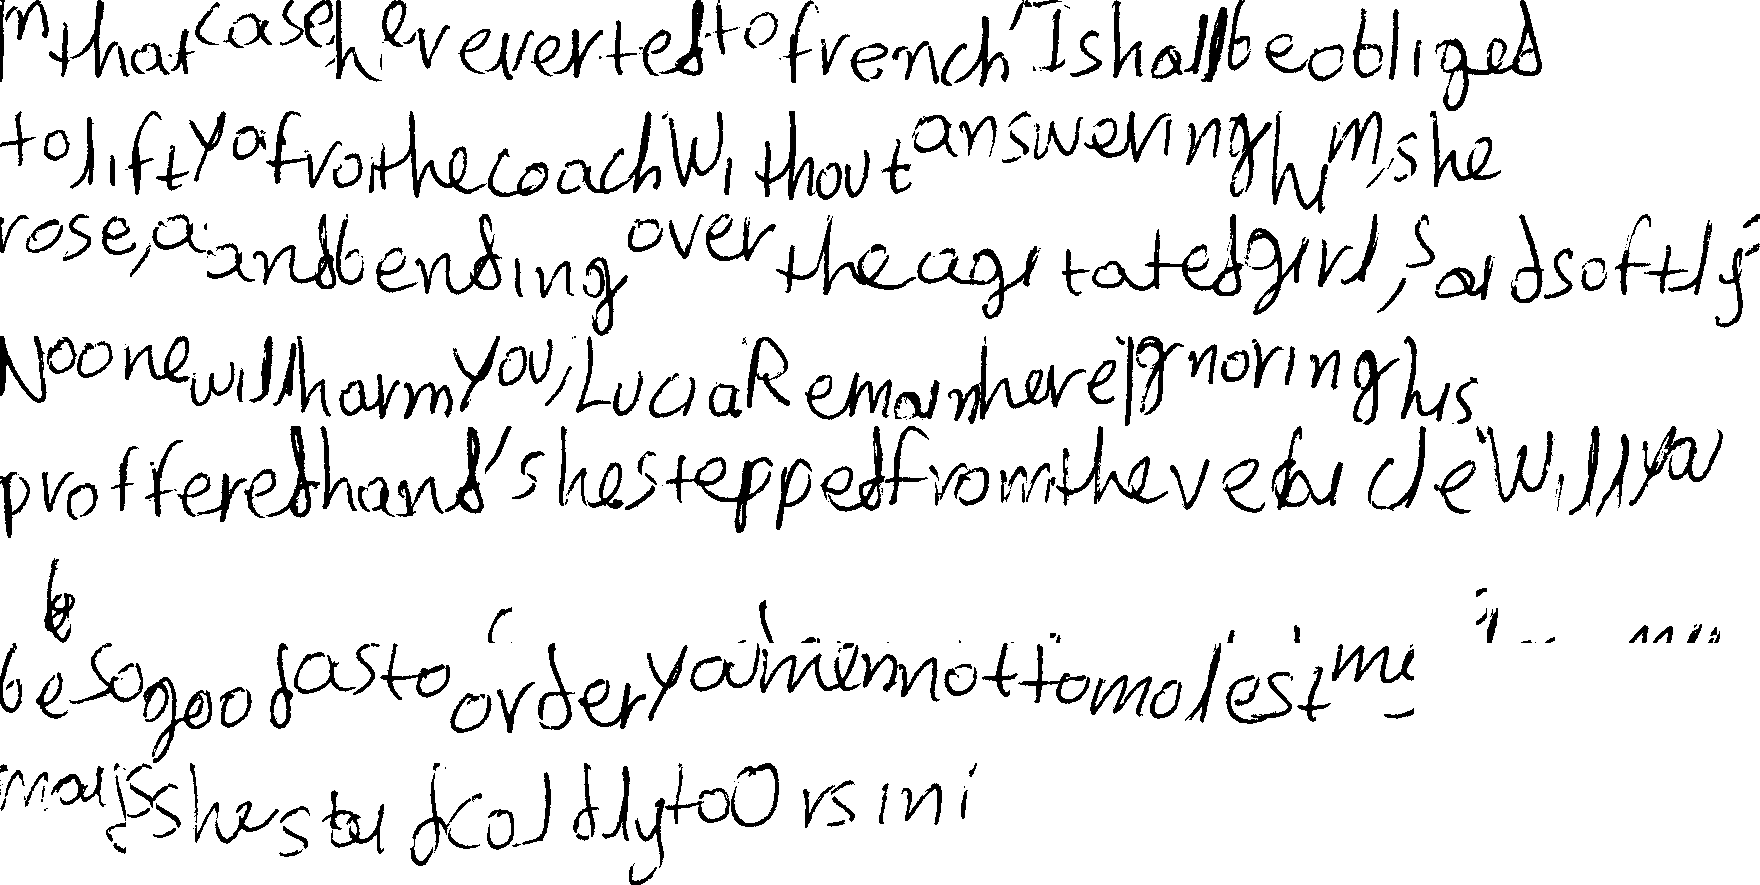 In that case he reverted to french "I shall be obliged
to lift you from the coach Without answering him, she
rose, a and bending over the agitated girl, said softly
No one will harm you, Lucia Remain here Ignoring his
proffered hand she stepped from the vehicle "Will you
be so good as to order your men not to molest my
maid she said coldly to Orsini